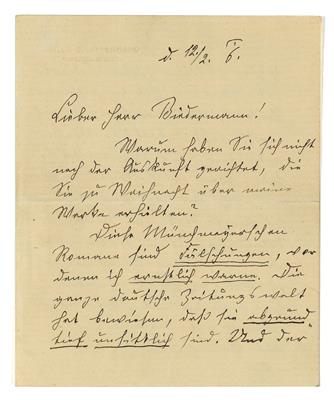 d. 12./2. 6.
Lieber Herr Biedermann!
Warum haben Sie sich nicht
nach der Auskunft gerichtet, die
Sie zu Weihnacht über meine
Werke erhielten?
Diese Münchmeyerschen
Romane sind Fälschungen, vor
denen ich ernstlich warne. Die
ganze deutsche Zeitungswelt
hat bewiesen, daß sie abgrund
tief unsittlich sind. Und der